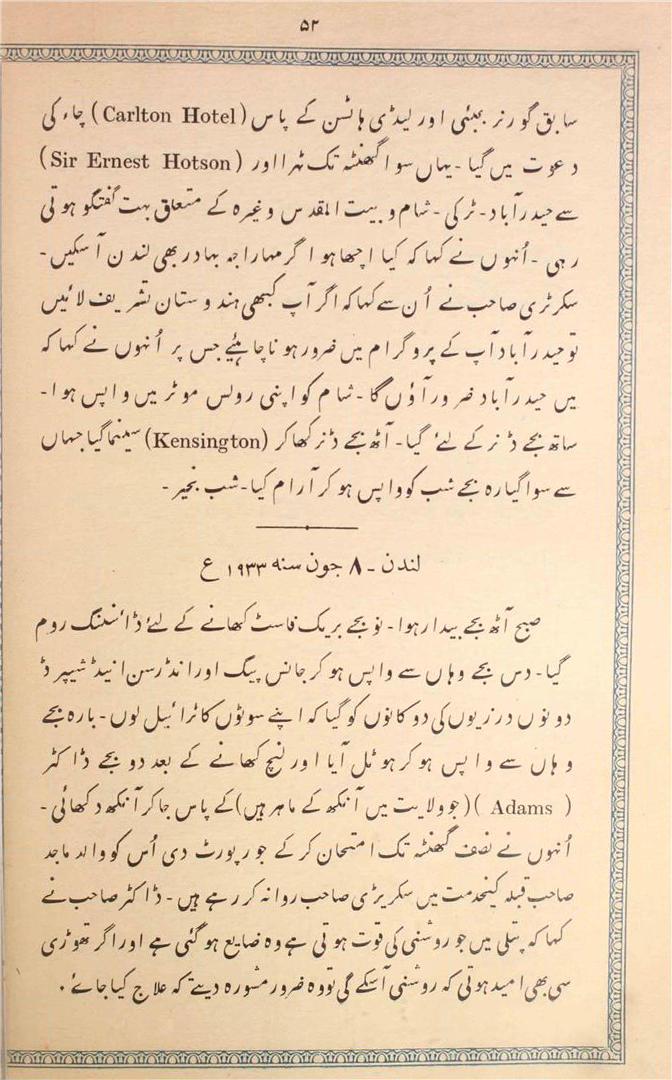 ۵۲
سابق گورنر بمبئی اور لیڈی ہاٹسن کے پاس (Carlton Hotel) چاء کی
دعوت میں گیا ۔ یہاں سوا گھنٹہ تک ٹہرا اور (Sir Ernest Hotson)
سے حیدرآباد ۔ ٹرکی ۔ شام و بیت المقدس وغیرہ کے متعلق بہت گفتگو ہوتی
رہی ۔ اُنہوں نے کہا کہ کیا اچھا ہو ا گر مہاراجہ بہادر بھی لندن آسکیں ۔
سکرٹری صاحب نے اُن سے کہا کہ اگر آپ کبھی ہندوستان تشریف لائیں
تو حیدرآباد آپ کے پروگرام میں ضرور ہونا چاہئیے جس پر اُنھوں نے کہا کہ
میں حیدرآباد ضرور آؤں گا ۔ شام کو اپنی رولس موٹر میں واپس ہوا ۔
ساتھ بجے ڈنر کے لئے گیا ۔ آٹھ بجے ڈنر کھا کر (Kensington) سینما گیا جہاں
سے سوا گیارہ بجے شب کو واپس ہو کر آرام کیا ۔ شب بخیر ۔
لندن ۔ ۸ جون سنہ ۱۹۳۳ ع
صبح آٹھ بجے بیدار ہوا ۔ نو بجے بریک فاسٹ کھانے کے لئے ڈائننگ روم
گیا ۔ دس بجے وہاں سے واپس ہو کر جانس پیگ اور انڈرسن اینڈ شیپرڈ
دونوں درزیوں کی دوکانوں کو گیا کہ اپنے سوٹوں کا ٹرائیل لوں ۔ بارہ بجے
وہاں سے واپس ہو کر ہوٹل آیا اور لنچ کھانے کے بعد دو بجے ڈاکٹر
( Adams ) (جو ولایت میں آنکھ کے ماہر ہیں) کے پاس جا کر آنکھ دکھائی ۔
اُنہوں نے نصف گھنٹہ تک امتحان کر کے جو رپورٹ دی اُس کو والد ماجد
صاحب قبلہ کیخدمت میں سکریٹری صاحب روانہ کر رہے ہیں ۔ ڈاکٹر صاحب نے
کہا کہ پتلی میں جو روشنی کی قوت ہوتی ہے وہ ضایع ہو گئی ہے اور اگر تھوڑی
سی بھی امید ہوتی کہ روشنی آسکے گی تو وہ ضرور مشورہ دیتے کہ علاج کیا جائے ۔